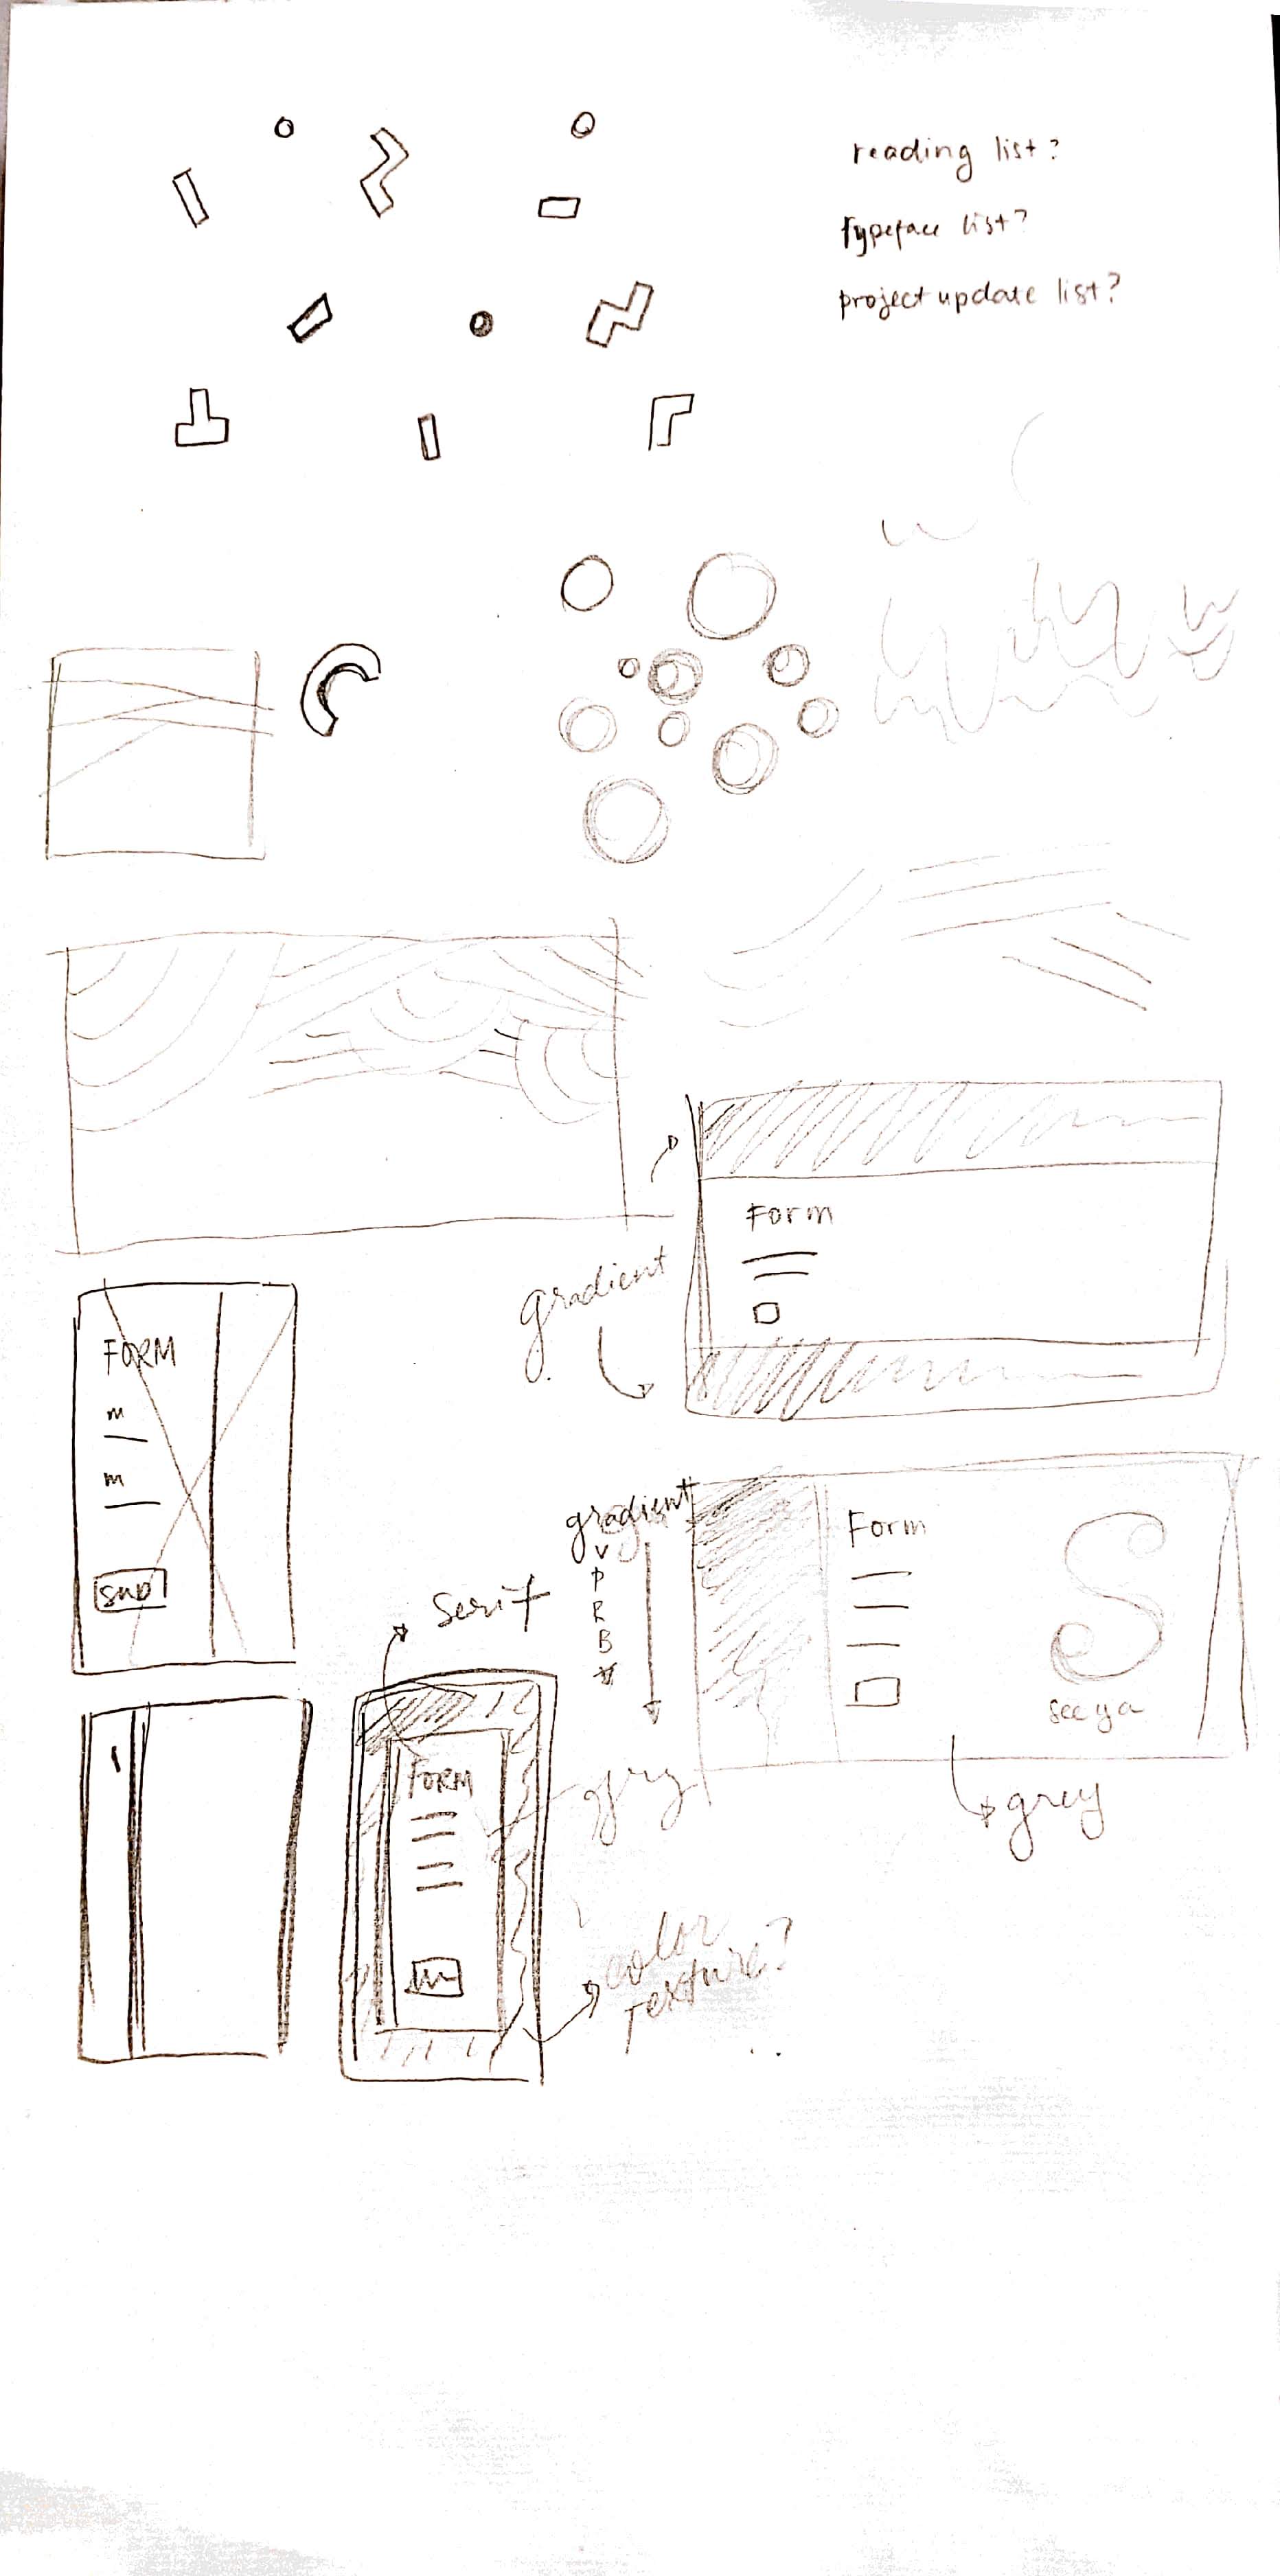 reading list?
Typeface list?
project update list?
Form
gradient
FORM
m
m
sub
gradient
V
P
R
B
Form
S
see ya
serif
FORM
grey
color
Texture?